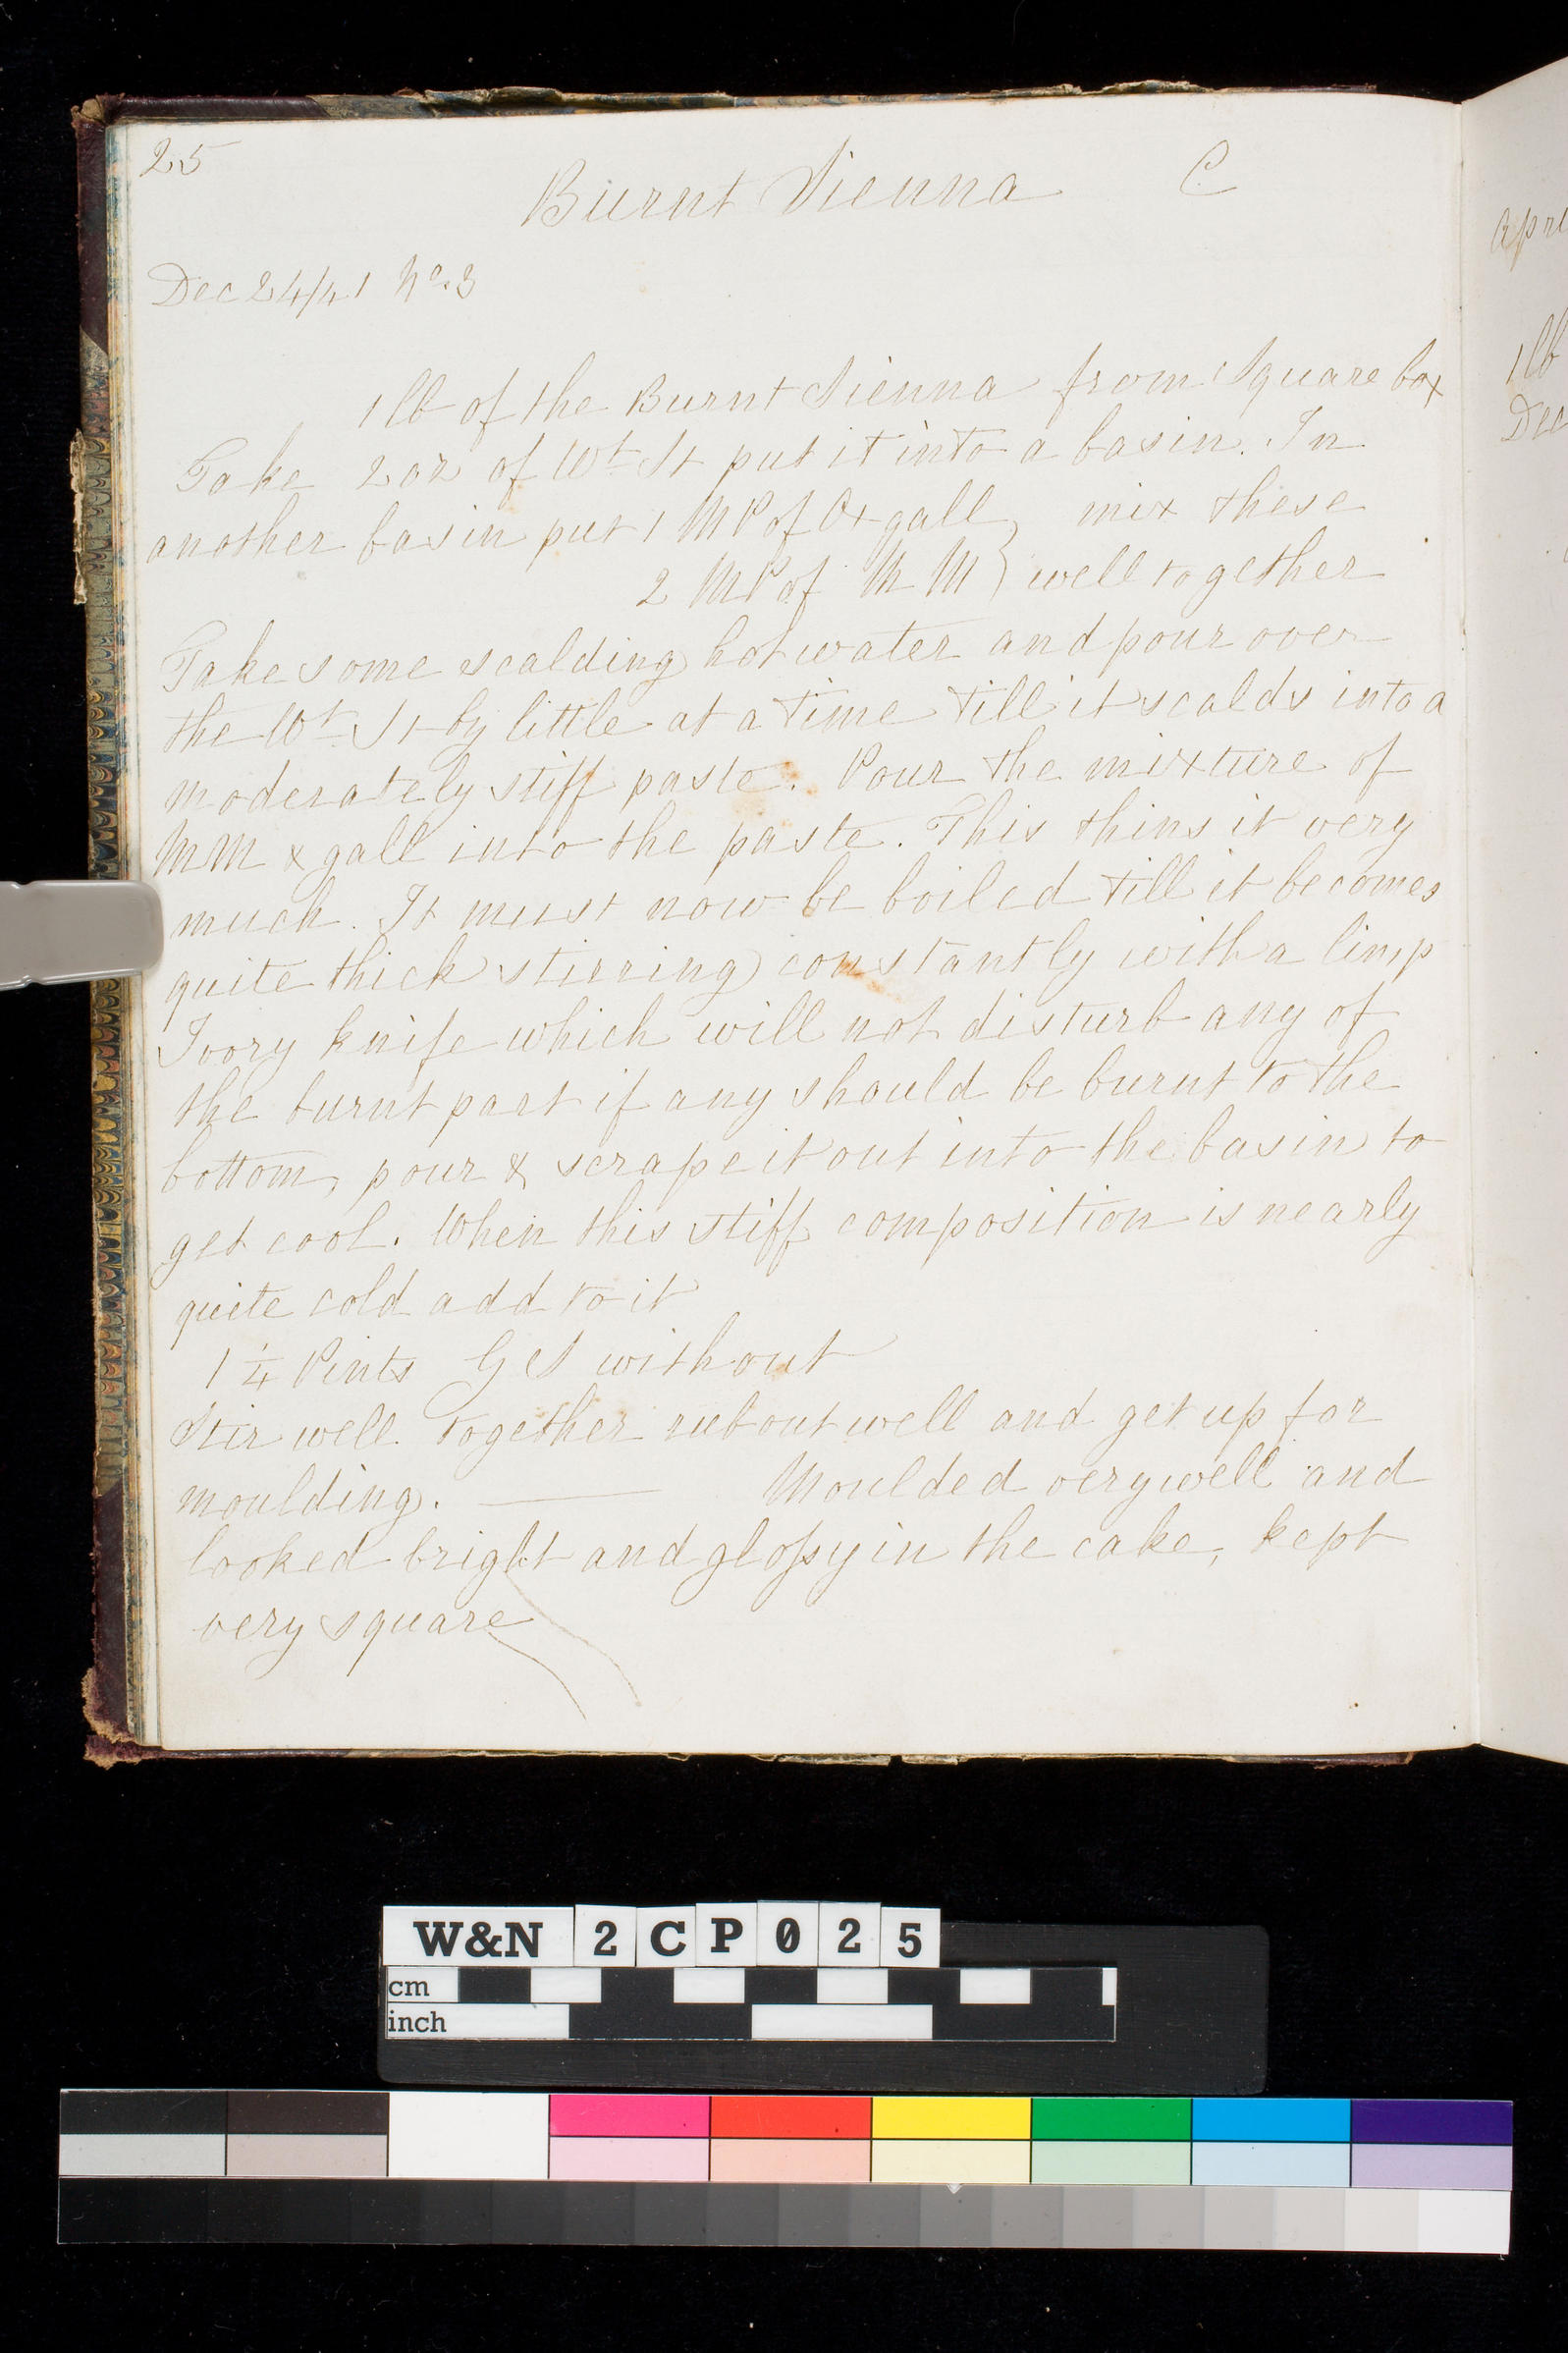 25
Burnt Sienna C
Dec 24/41 No. 3
1 lb of the Burnt Sienna from Square box
Take 2 oz of Wt St put it into a basin. In
another basin put 1 MP of Ox gall } mix these
2 MP of M M } well together
Take some scalding hot water and pour over
the Wt St by little at a time till it scalds into a
moderately stiff paste. Pour the mixture of
MM & gall into the paste. This thins it very
much. It must now be boiled till it becomes
quite thick stirring constantly with a limp
Ivory knife which will not disturb any of
the burnt part if any should be burnt to the
bottom, pour & scrape it out into the basin to
get cool. When this stiff composition is nearly
quite cold add to it
1 1/4 Pints G S without
Stir well together rub out well and get up for
moulding. — Moulded very well and
looked bright and glossy in the cake, kept
very square
Apri
1 lb
Dec
W&N 2CP025
cm
inch